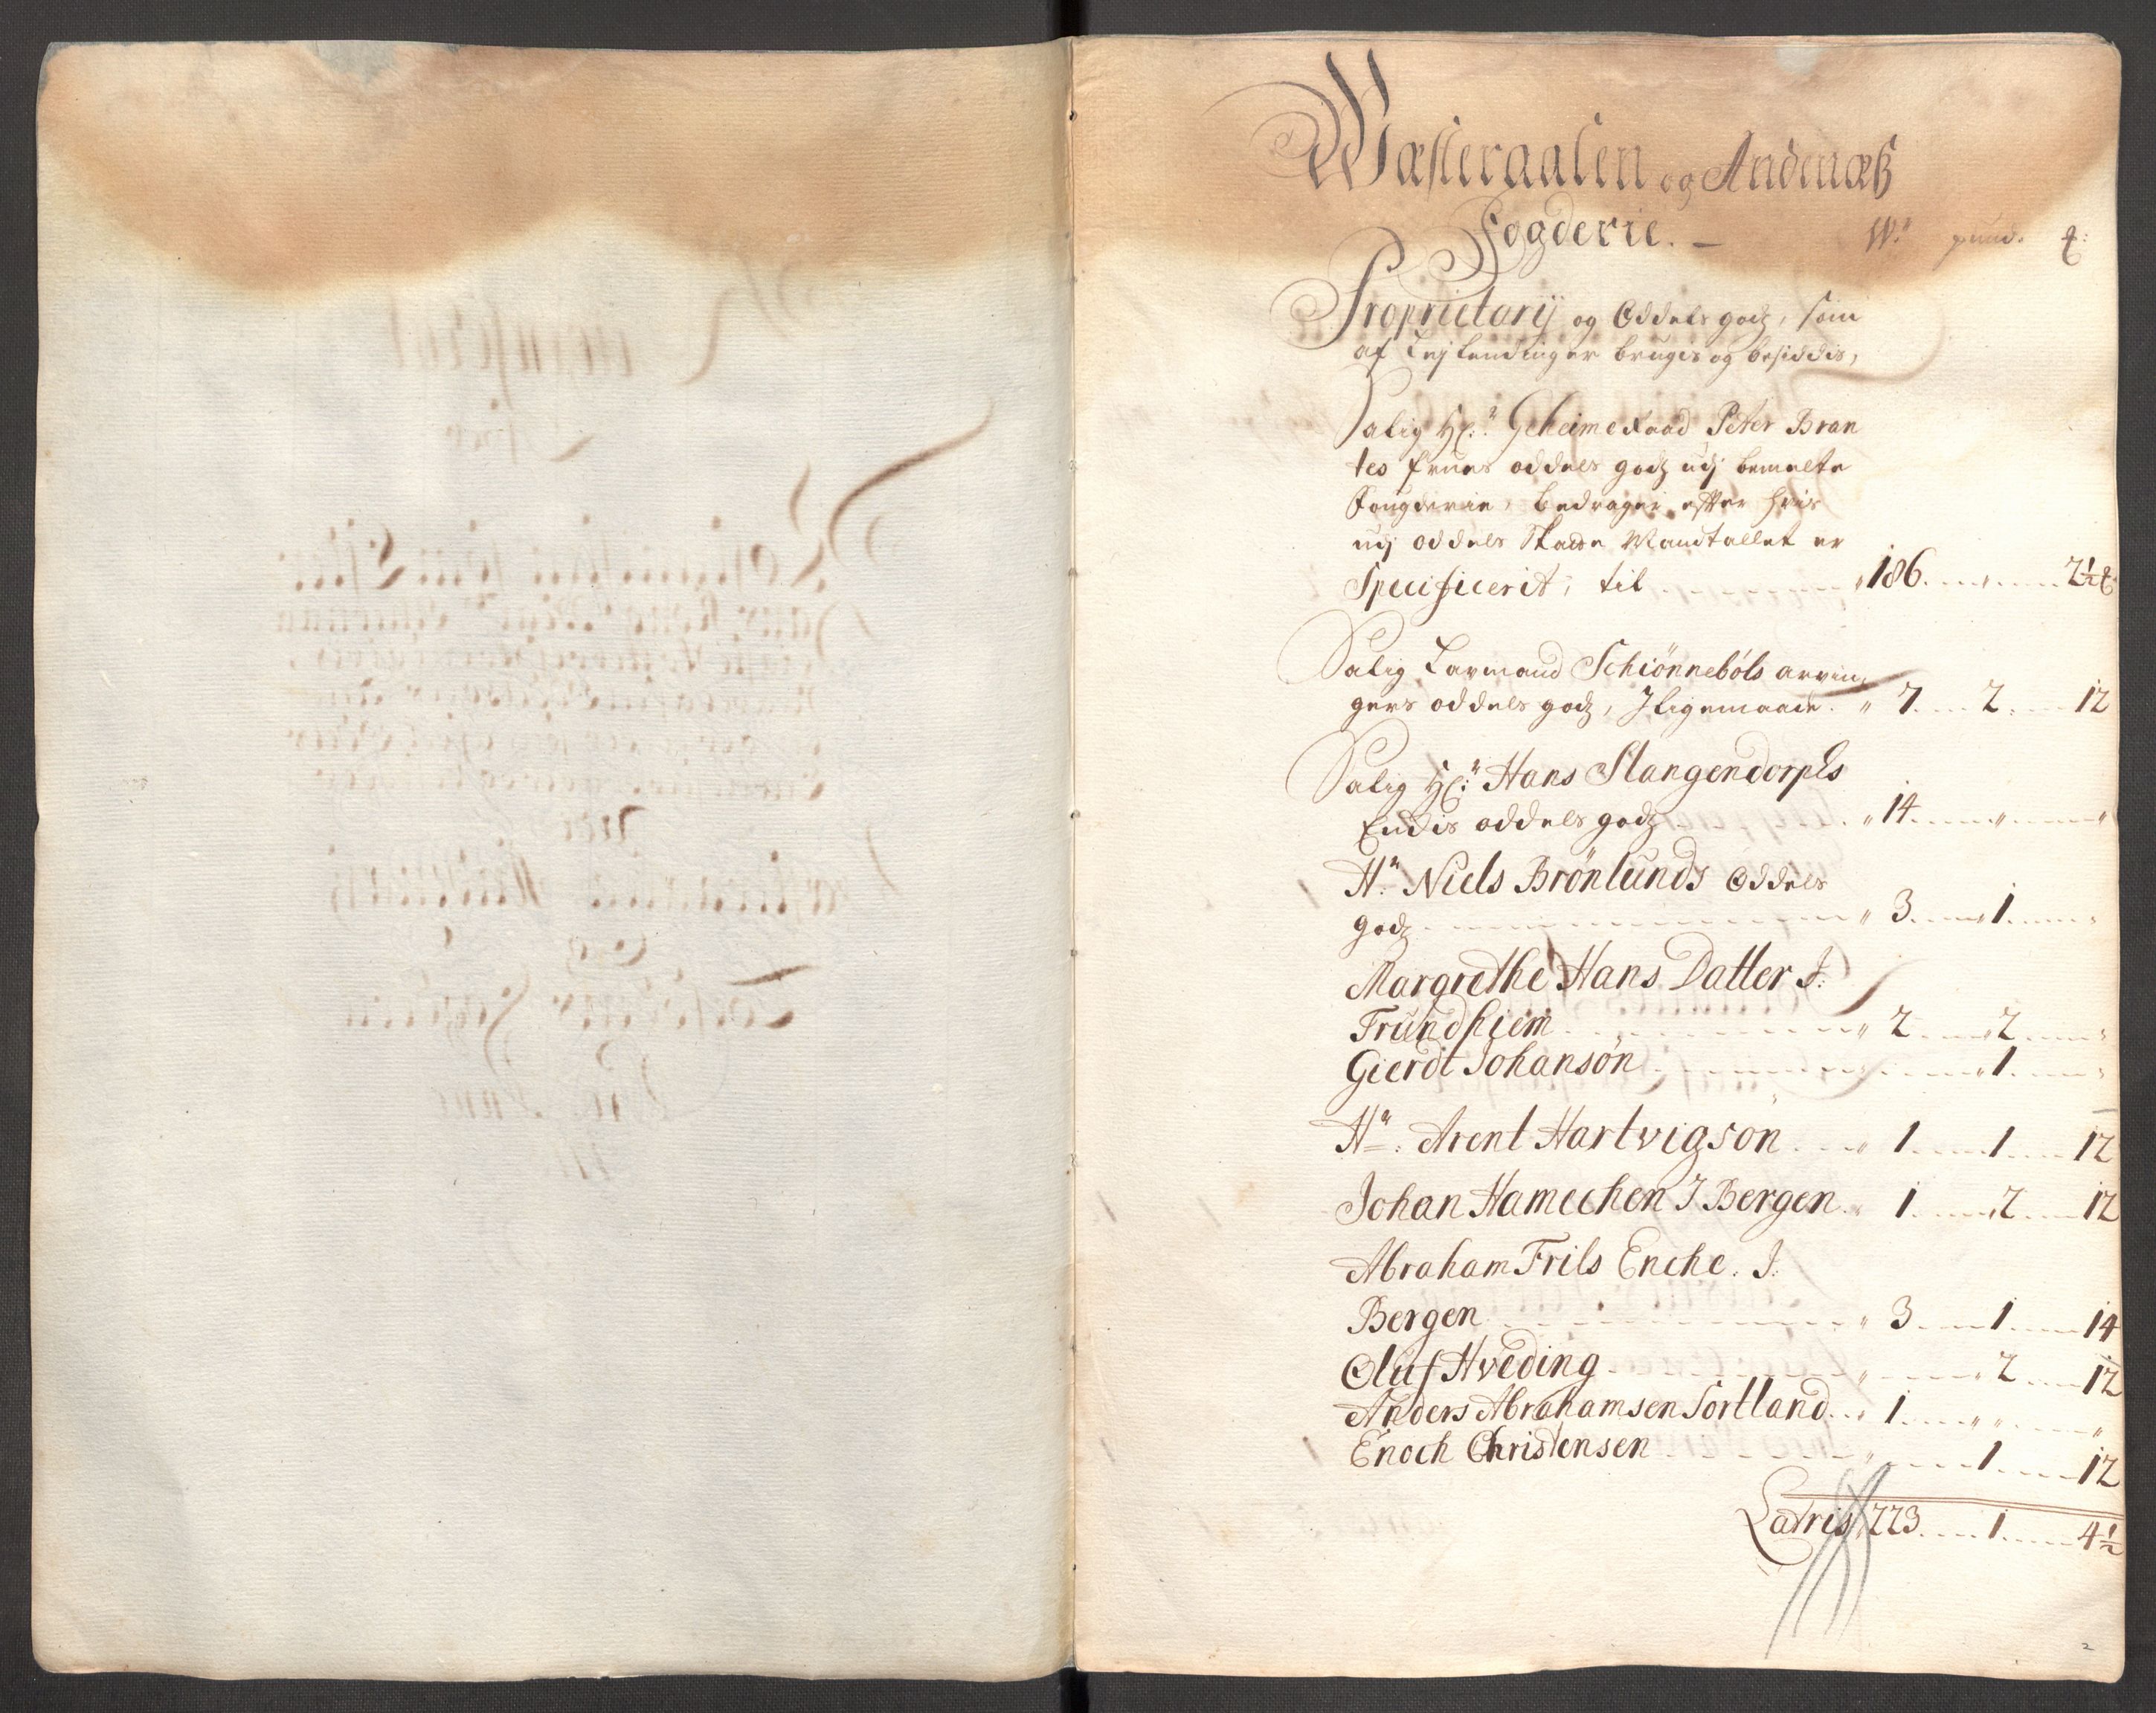 Wæsteraalen og Andenæs
Fogderie. — W. pund. ℔:
Proprietarij og Oddels godz, som
af Leylendinger bruges og besiddis,
Salig Hr. Geheimeraad Peter Bran
tes Frues oddels godz udj bemelte
Fougderie, bedrager efter hvis
udj oddels Skatte Mandtallet er
Specificerit, til 186 . . . 2½ ℔
Salig Laumand Schiønnebøls arvin
gers oddels godz, J ligemaade. 7 . . . 2 . . . 12
Salig Hr. Hans Stangendorphs
Enchis oddels godz . . . 14 . . . " . . . "
Hr. Niels Brønlunds Oddels
godz . . . 3 . . . 1 . . . "
Margrethe Hans Datter J:
Trundhiem . . . 2 . . . 2 . . . "
Gierdt Johansøn . . . 1 . . . "
Hr. Arent Hartvigsøn . . . 1 . . . 1 . . . 12
Johan Hamechen J Bergen . 1 . . . 2 . . . 12
Abraham Frils Enche. J:
Bergen . . . 3 . . . 1 . . . 14
Oluf Hveding . . . 2 . . . 12
Anders Abrahamsen Sortland . . 1 . . . " . . . "
Enoch Christensen . . . 1 . . . 12
Latris 223 . . . 1 . . . 4½
2